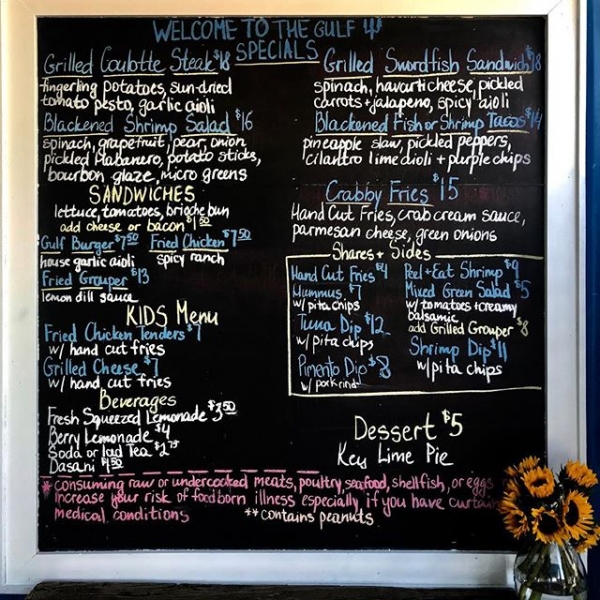 WELCOME TO THE GULF
SPECIALS
Grilled Coulotte Steak $18
fingerling potatoes, sun-dried
tomato pesto, garlic aioli
Blackened Shrimp Salad $16
spinach, grapefruit, pear, onion
pickled habanero, potato sticks,
bourbon glaze, micro greens
SANDWICHES
lettuce, tomatoes, brioche bun
add cheese or bacon $1.50
Gulf Burger $7.50 Fried Chicken $7.50
house garlic aioli spicy ranch
Fried Grouper $13
lemon dill sauce
KIDS Menu
Fried Chicken Tenders $7
w/ hand cut fries
Grilled Cheese $7
w/ hand cut fries
Beverages
Fresh Squeezed Lemonade $3.50
Berry Lemonade $4
Soda or Iced Tea $2.75
Dasani $1.50
Grilled Swordfish Sandwich $18
spinach, havarti cheese, pickled
carrots + jalapeno, spicy aioli
Blackened Fish or Shrimp Tacos $14
pineapple slaw, pickled peppers,
cilantro lime aioli + purple chips
Crabby Fries $15
Hand Cut Fries, crab cream sauce,
parmesan cheese, green onions
Shares + Sides
Hand Cut Fries $4
Hummus $7
w/ pita chips
Tuna Dip $12
w/ pita chips
Pimento Dip $8
w/ pork rind
Peel + Eat Shrimp $9
Mixed Green Salad $5
w/ tomatoes + creamy
balsamic
add Grilled Grouper $8
Shrimp Dip $11
w/ pita chips
Dessert $5
Key Lime Pie
* consuming raw or undercooked meats, poultry, seafood, shellfish, or eggs
increase your risk of foodborn illness especially if you have curtain
medical conditions **contains peanuts